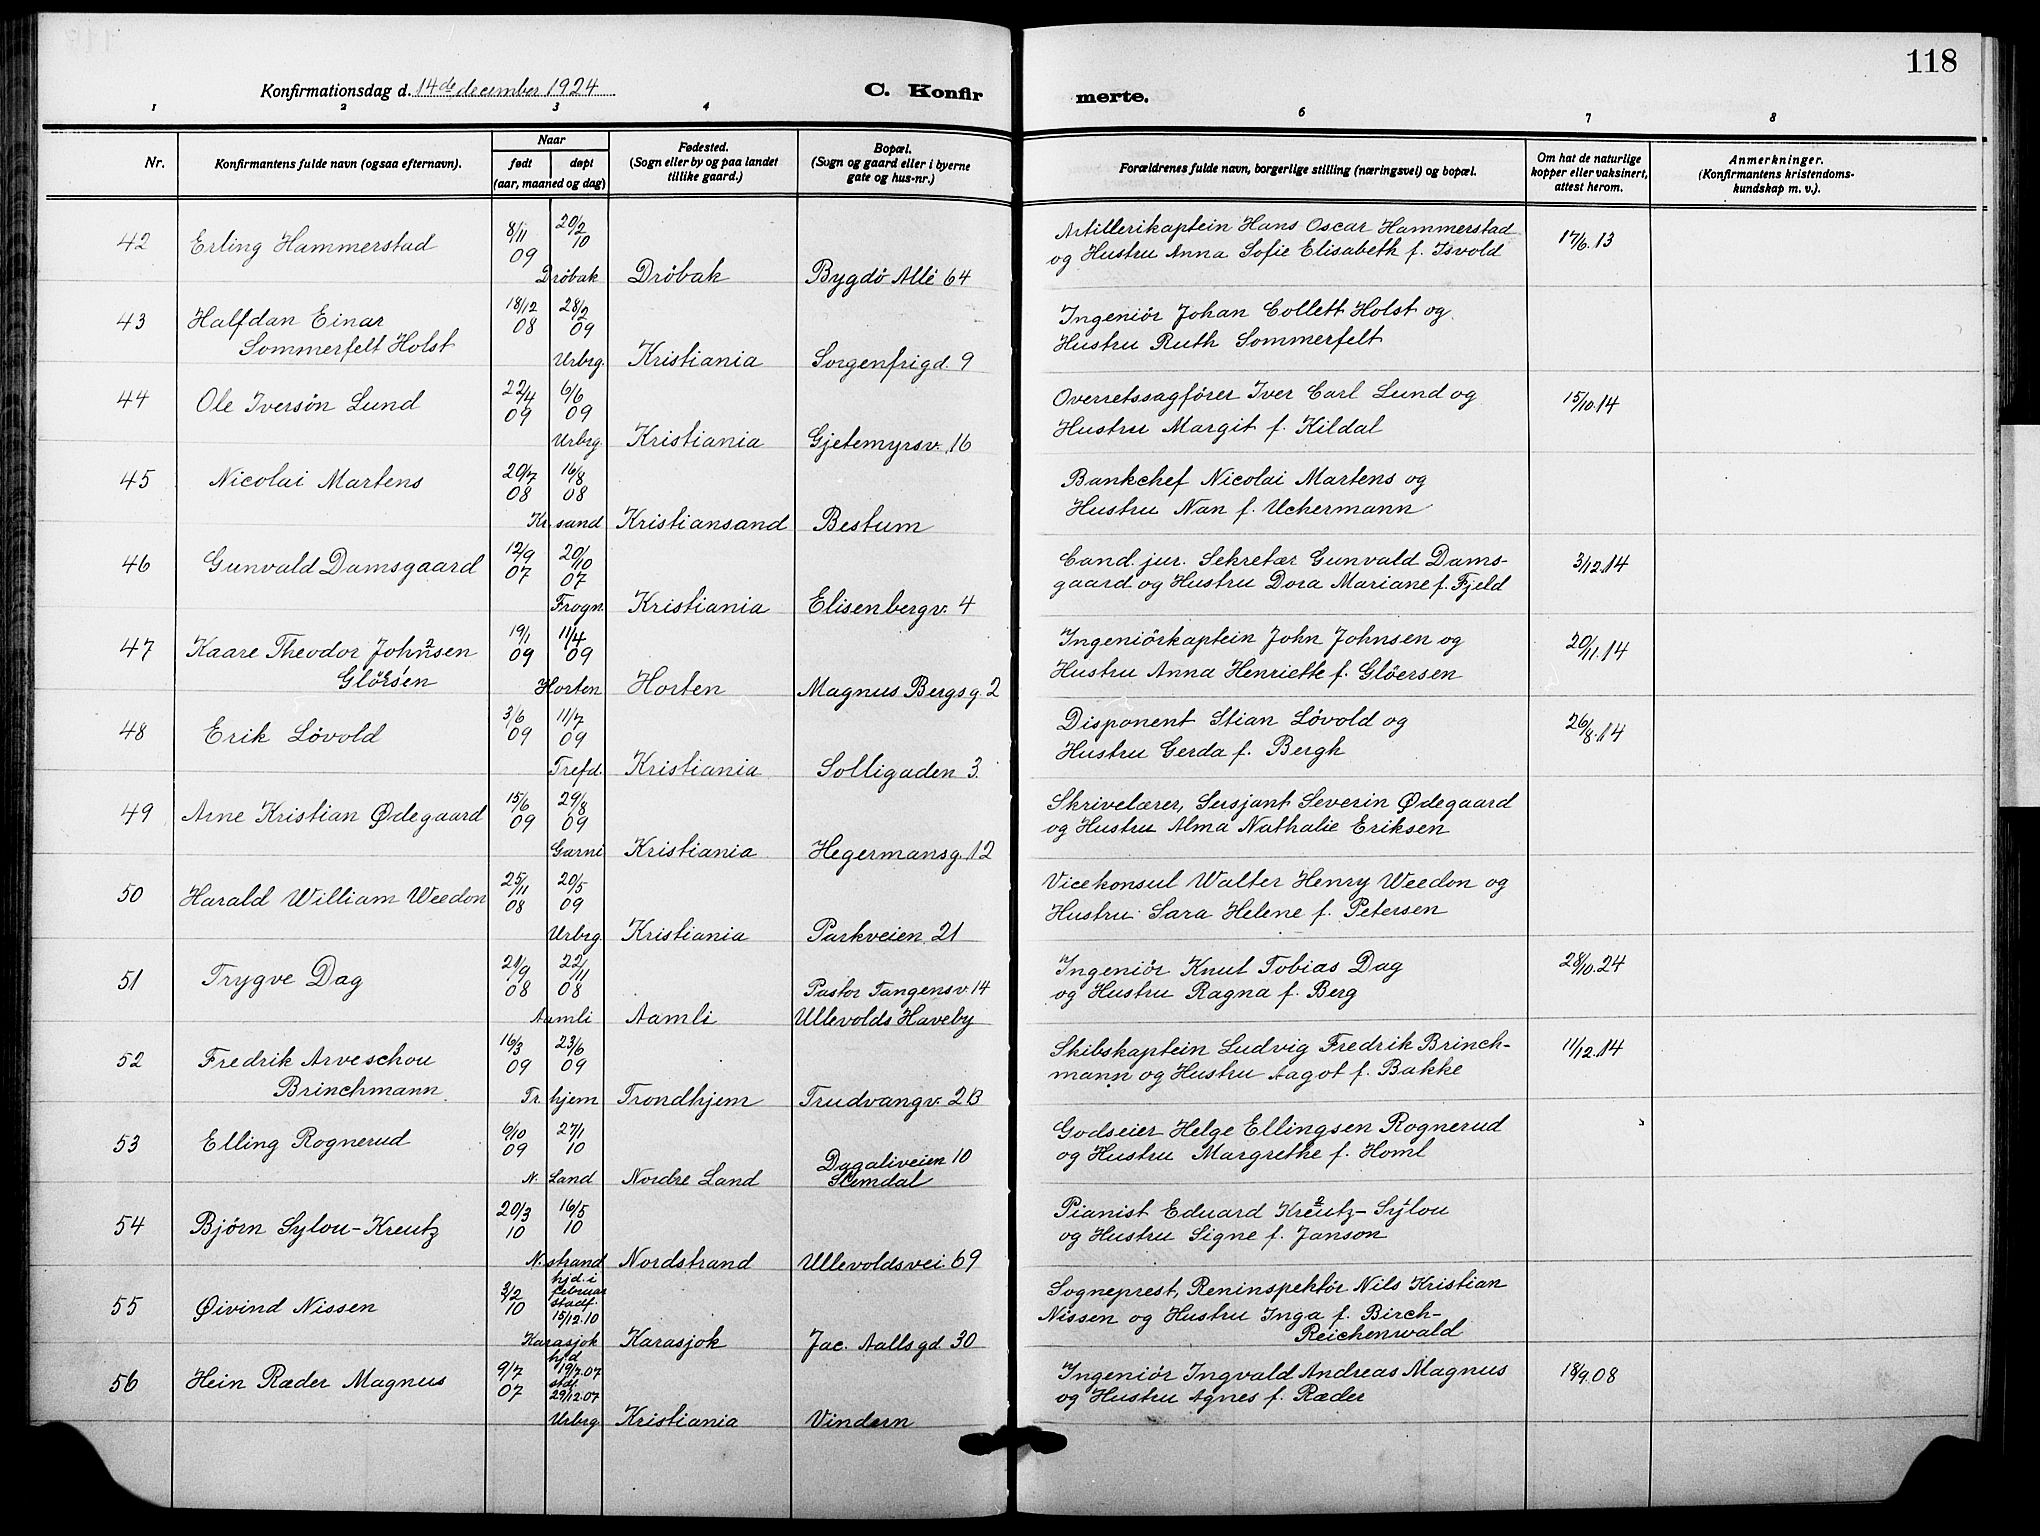 118
Konfirmationsdag d. 14de december 1924
C. Konfir merte.
1 2 3 4 6 7 8
Nr.
Konfirmantens fulde navn (ogsaa efternavn).
Naar
født døpt
(aar, maaned og dag)
Fødested.
(Sogn eller by og paa landet
tillike gaard.)
Bopæl.
(Sogn og gaard eller i byerne
gate og hus-nr.)
Forældrenes fulde navn, borgerlige stilling (næringsvei) og bopæl.
Om hat de naturlige
kopper eller vaksinert,
attest herom.
Anmerkninger.
(Konfirmantens kristendoms-
kundskap m. v.).
42 Erling Hammerstad 8/11 09 20/2 10
Drøbak Drøbak Bygdø Allé 64
Artillerikaptein Hans Oscar Hammerstad
og Hustru Anna Sofie Elisabeth f. Isvold
17/6.13
43 Halfdan Einar
Sommerfelt Holst
18/12 08 28/2 09
Urbrg. Kristiania Sorgenfrigd. 9
Ingeniør Johan Collett Holst og
Hustru Ruth Sommerfelt
44 Ole Iversøn Lund 22/4 09 6/6 09
Urbrg. Kristiania Gjetemyrsv. 16
Overretssagfører Iver Carl Lund og
Hustru Margit f. Kildal
15/10.14
45 Nicolai Martens 20/7 08 16/8 08
Kr. sand Kristiansand Bestum
Bankchef Nicolai Martens og
Hustru Nan f. Uchermann
46 Gunvald Damsgaard 12/9 07 20/10 07
Frogn. Kristiania Elisenbergv. 4
Cand. jur. Sekretær Gunvald Dams-
gaard og Hustru Dora Mariane f. Fjeld
3/12.14
47 Kaare Theodor Johnsen
Gløersen
19/1 09 11/4 09
Horten Horten Magnus Bergsg. 2
Ingeniørkaptein John Johnsen og
Hustru Anna Henriette f. Gløersen
20/11.14
48 Erik Løvold 3/6 09 11/7 09
Trefd. Kristiania Solligaden 3.
Disponent Stian Løvold og
Hustru Gerda f. Bergh
26/8.14
49 Arne Kristian Ødegaard 15/6 09 29/8 09
Garni Kristiania Hegermansg. 12
Skrivelærer, Sersjant Severin Ødegaard
og Hustru Alma Nathalie Eriksen
50 Harald William Weedon 25/11 08 20/5 09
Urbrg. Kristiania Parkveien 21
Vicekonsul Walter Henry Weedon og
Hustru Sara Helene f. Petersen
51 Trygve Dag 21/9 08 22/11 08
Aamli Aamli
Pastor Fangensv. 14
Ullevolds Haveby
Ingeniør Knut Tobias Dag
og Hustru Ragna f. Berg
28/10.24
52 Fredrik Arveschou
Brinchmann
16/3 09 23/6 09
Tr. hjem Trondhjem Trudvangv. 2B
Skibskaptein Ludvig Fredrik Brinch-
mann og Hustru Aagot f. Bakke
11/12.14
53 Elling Rognerud 6/10 09 27/1 10
N. Land Nordre Land
Dagaliveien 10
Slemdal
Godseier Helge Ellingsen Rognerud
og Hustru Margrethe f. Homl
54 Bjørn Sylou-Kreutz 20/3 10 16/5 10
N. strand Nordstrand Ullevoldsvei. 69
Pianist Eduard Kreutz-Sylou
og Hustru Signe f. Janson
55 Øivind Nissen 3/2 10
hjd. i
februar
stadf.
15/12.10
Karasjok Karasjok Jac. Aallsgd. 30
Sogneprest, Reninspektør Nils Kristian
Nissen og Hustru Inga f. Birch-
Reichenwald
56 Hein Ræder Magnus 9/7 07
hjd
19/7.07
stdf.
29/12.07
Urbrg Kristiania Vindern
Ingeniør Ingvald Andreas Magnus
og Hustru Agnes f. Ræder
18/9.08